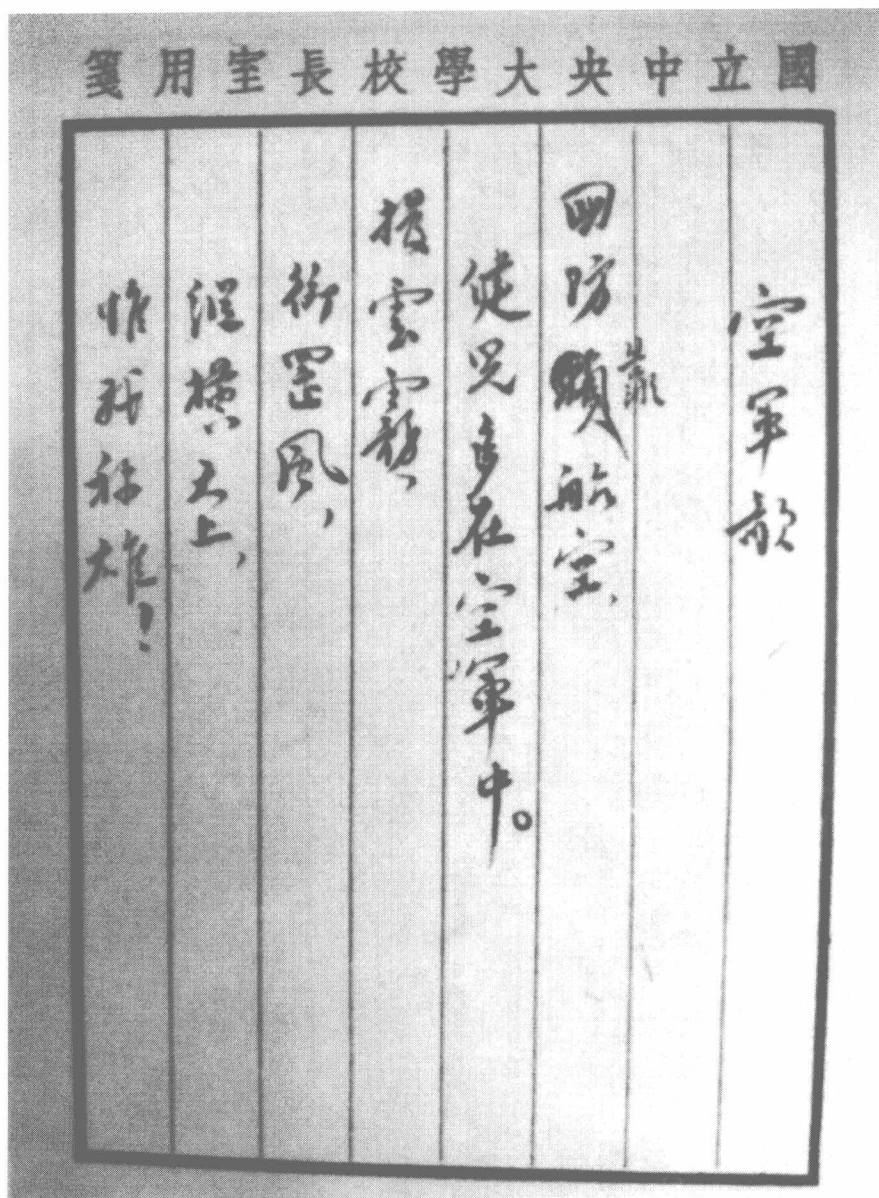 國立中央大學校長室用箋
空軍歌
國防航空、
健兒在空軍中。
撥雲霧、
御罡風，
縱橫天上，
惟我稱雄！